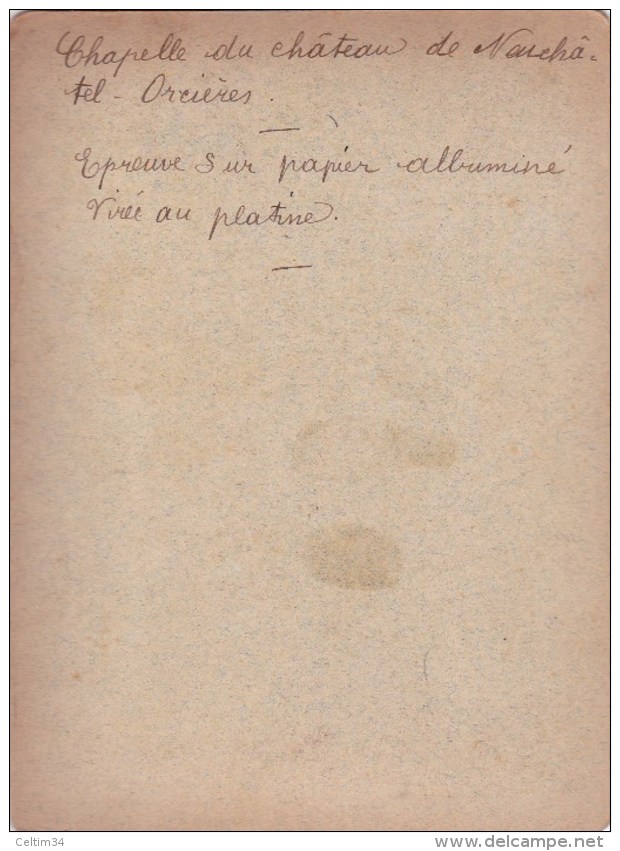 Chapelle du château de Neuchâ-
tel - Orcières.
Epreuve sur papier albuminé
Virée au platine.
Celtim34
www.delcampe.net